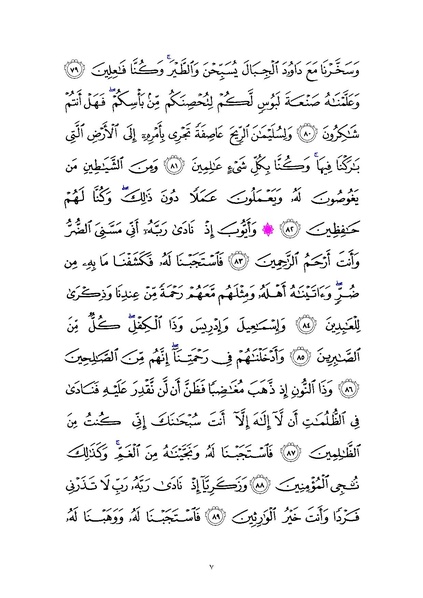 وَسَخَّرْنَا مَعَ دَاوُۥدَ ٱلْجِبَالَ يُسَبِّحْنَ وَٱلطَّيْرَ ۚ وَكُنَّا فَـٰعِلِينَ ٧٩
وَعَلَّمْنَـٰهُ صَنْعَةَ لَبُوسٍ لَّكُمْ لِتُحْصِنَكُم مِّنۢ بَأْسِكُمْ ۖ فَهَلْ أَنتُمْ
شَـٰكِرُونَ ٨٠ وَلِسُلَيْمَـٰنَ ٱلرِّيحَ عَاصِفَةً تَجْرِى بِأَمْرِهِۦٓ إِلَى ٱلْأَرْضِ ٱلَّتِى
بَـٰرَكْنَا فِيهَا ۚ وَكُنَّا بِكُلِّ شَىْءٍ عَـٰلِمِينَ ٨١ وَمِنَ ٱلشَّيَـٰطِينِ مَن
يَغُوصُونَ لَهُۥ وَيَعْمَلُونَ عَمَلًا دُونَ ذَٰلِكَ ۖ وَكُنَّا لَهُمْ
حَـٰفِظِينَ ٨٢ ۞ وَأَيُّوبَ إِذْ نَادَىٰ رَبَّهُۥٓ أَنِّى مَسَّنِىَ ٱلضُّرُّ
وَأَنتَ أَرْحَمُ ٱلرَّٰحِمِينَ ٨٣ فَٱسْتَجَبْنَا لَهُۥ فَكَشَفْنَا مَا بِهِۦ مِن
ضُرٍّ ۖ وَءَاتَيْنَـٰهُ أَهْلَهُۥ وَمِثْلَهُم مَّعَهُمْ رَحْمَةً مِّنْ عِندِنَا وَذِكْرَىٰ
لِلْعَـٰبِدِينَ ٨٤ وَإِسْمَـٰعِيلَ وَإِدْرِيسَ وَذَا ٱلْكِفْلِ ۖ كُلٌّ مِّنَ
ٱلصَّـٰبِرِينَ ٨٥ وَأَدْخَلْنَـٰهُمْ فِى رَحْمَتِنَآ ۖ إِنَّهُم مِّنَ ٱلصَّـٰلِحِينَ
٨٦ وَذَا ٱلنُّونِ إِذ ذَّهَبَ مُغَـٰضِبًا فَظَنَّ أَن لَّن نَّقْدِرَ عَلَيْهِ فَنَادَىٰ
فِى ٱلظُّلُمَـٰتِ أَن لَّآ إِلَـٰهَ إِلَّآ أَنتَ سُبْحَـٰنَكَ إِنِّى كُنتُ مِنَ
ٱلظَّـٰلِمِينَ ٨٧ فَٱسْتَجَبْنَا لَهُۥ وَنَجَّيْنَـٰهُ مِنَ ٱلْغَمِّ ۚ وَكَذَٰلِكَ
نُـۨجِى ٱلْمُؤْمِنِينَ ٨٨ وَزَكَرِيَّآ إِذْ نَادَىٰ رَبَّهُۥ رَبِّ لَا تَذَرْنِى
فَرْدًا وَأَنتَ خَيْرُ ٱلْوَٰرِثِينَ ٨٩ فَٱسْتَجَبْنَا لَهُۥ وَوَهَبْنَا لَهُۥ
٧